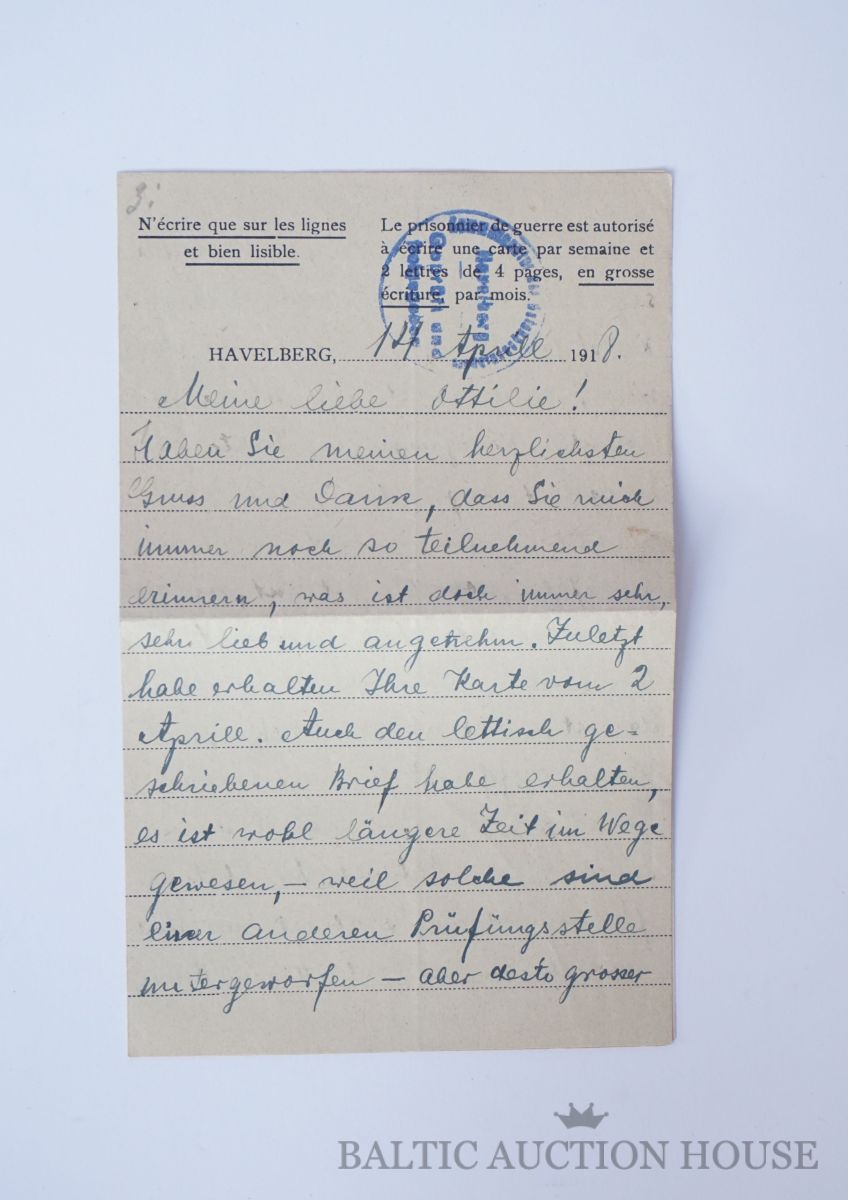 3.
N'écrire que sur les lignes
et bien lisible.
Le prisonnier de guerre est autorisé
à écrire une carte par semaine et
2 lettres de 4 pages, en grosse
écriture, par mois.
Havelberg
Geprüft und
HAVELBERG, 14 Aprill 1918.
Meine liebe Ottilie!
Haben Sie meinen herzlichsten
Gruss und Dank, dass Sie mich
immer noch so teilnehmend
erinnern, was ist doch immer sehr,
sehr lieb und angenehm. Zuletzt
habe erhalten Ihre Karte vom 2
Aprill. Auch den lettisch ge-
schriebenen Brief habe erhalten,
es ist wohl längere Zeit im Wege
gewesen, – weil solche sind
einer anderen Prüfüngsstelle
untergeworfen – aber desto grosser
BALTIC AUCTION HOUSE